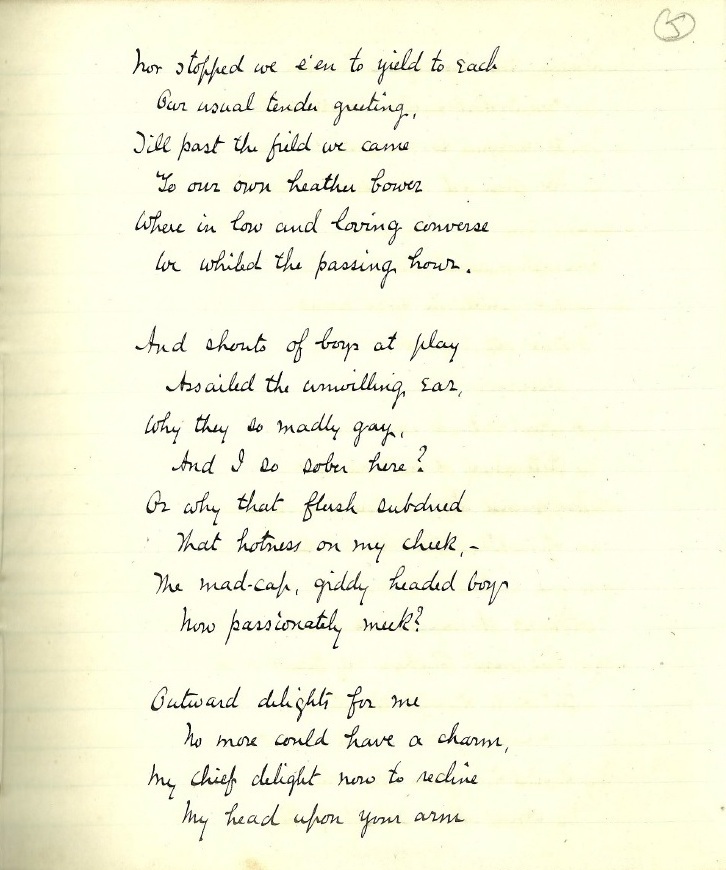 5
Nor stopped we e'en to yield to each
Our usual tender greeting,
Till past the field we came
To our own heather bower
Where in low and loving converse
We whiled the passing hour.
And shouts of boys at play
Assailed the unwilling ear,
Why they so madly gay,
And I so sober here?
Or why that flush subdued
That hotness on my cheek, -
The mad-cap, giddy headed boy
Now passionately meek?
Outward delights for me
No more could have a charm,
My chief delight now to recline
My head upon your arm